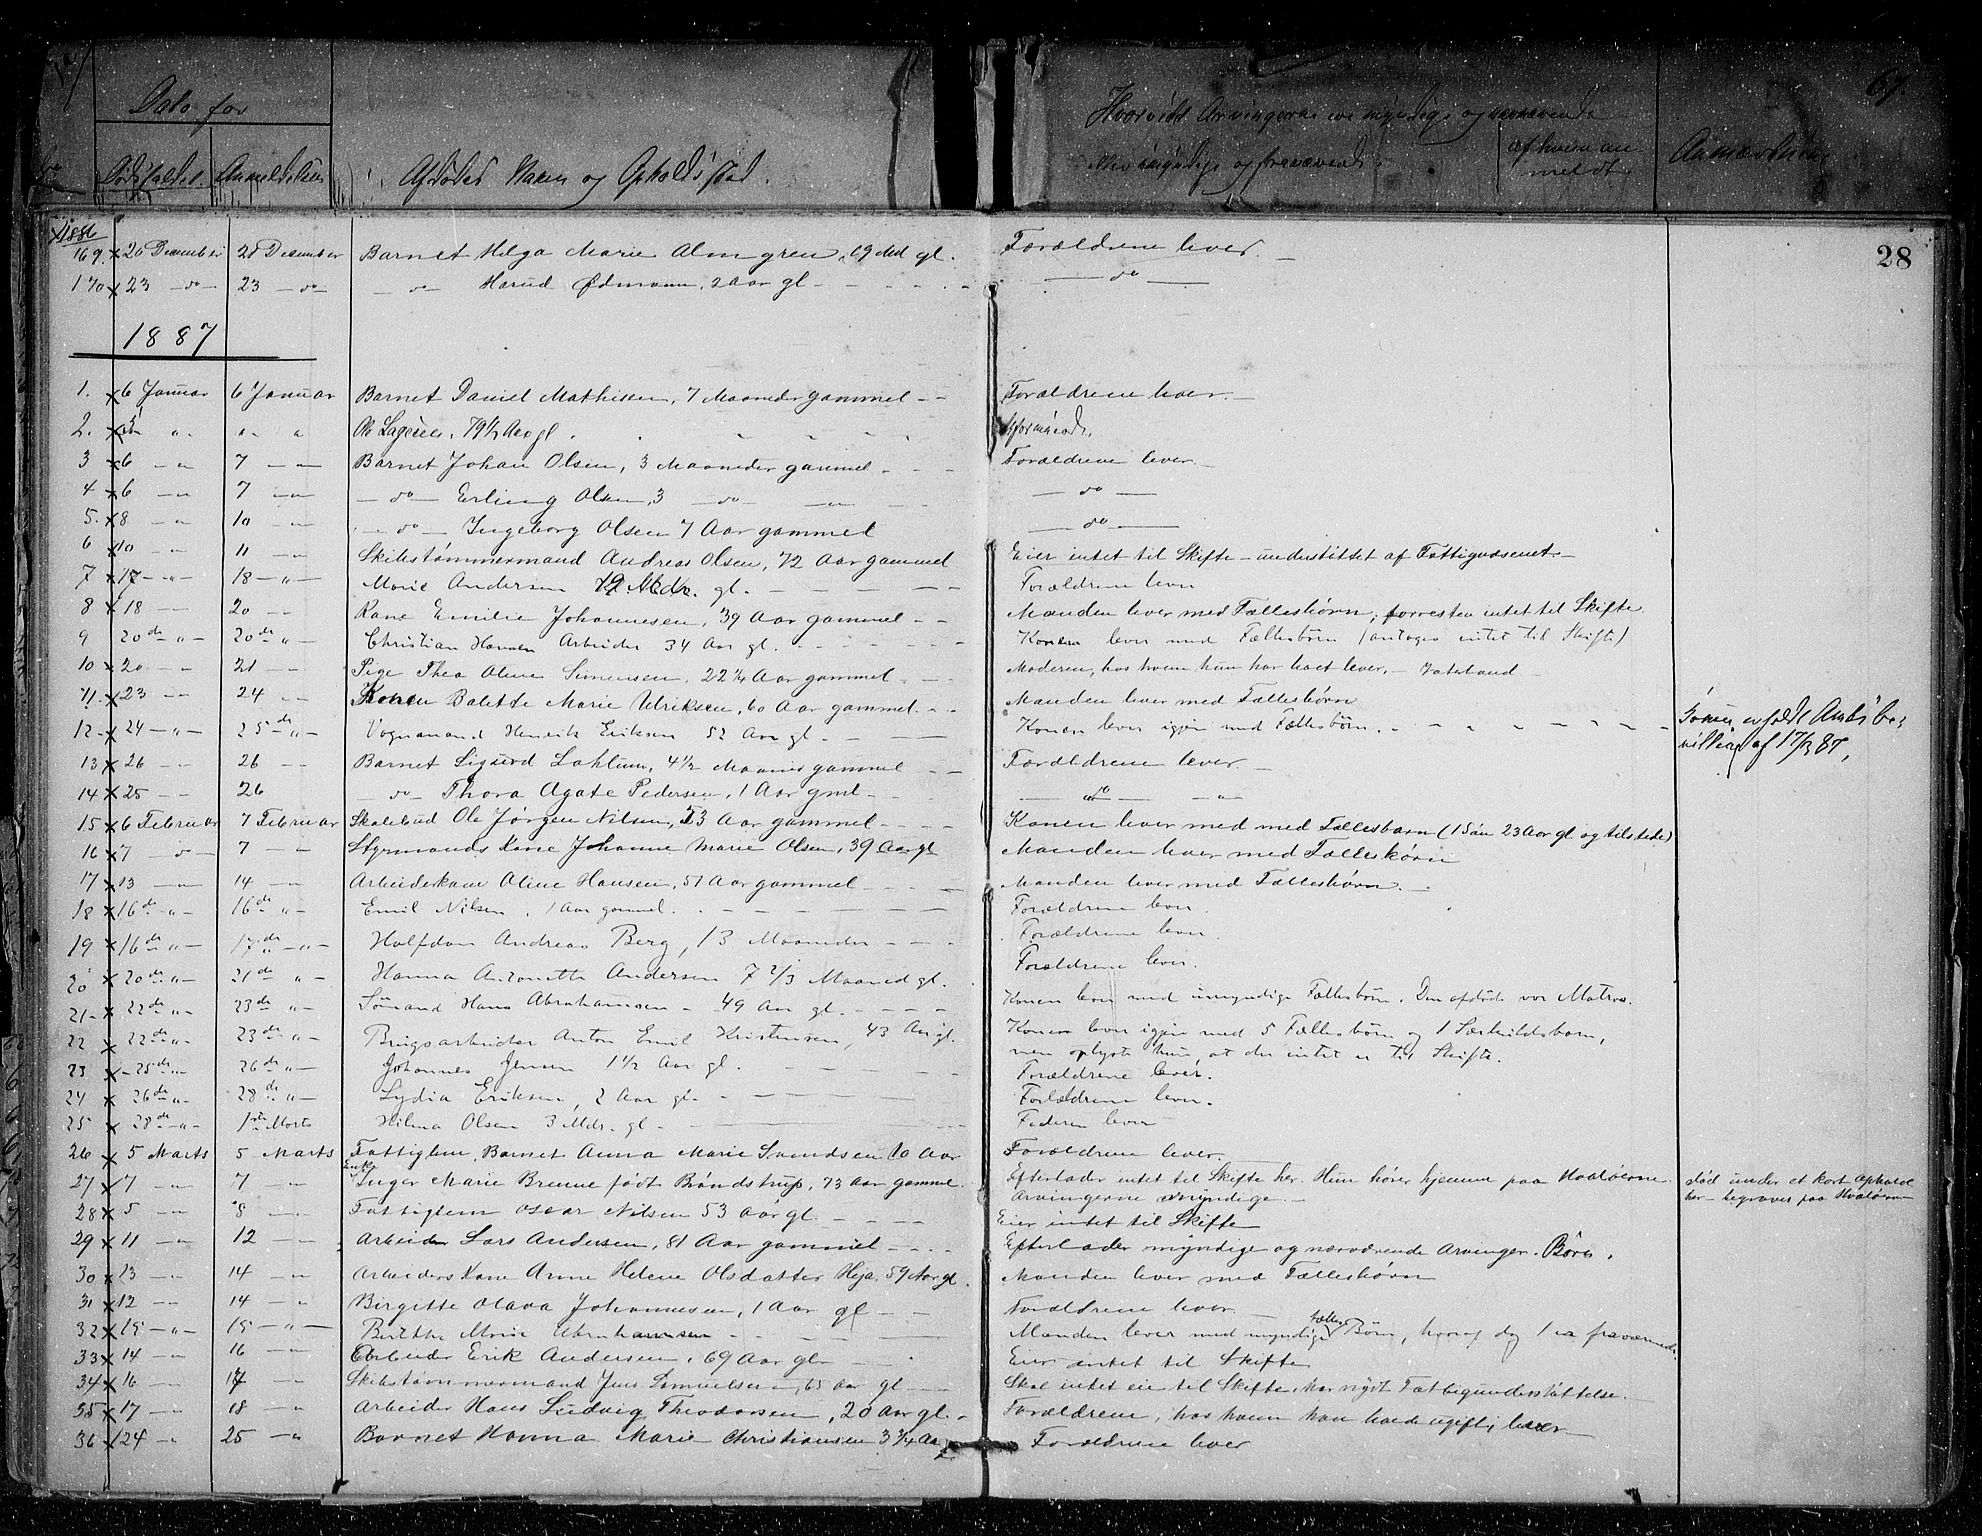 Dato for
Dødsfaldet. Anmeldelsen
Afdødes Navn og Opholdssted.
Hvorvidt Arvingerne ere myndige og nærværende
eller umyndige og fraværende.
af hvem anmeldt.
Anmærkning
67.
28
1886
169. x 20 December 21 December Barnet Helga Marie Almgren, 19 Md gl. Forældrene lever.
170 x 23 — do — 23 — do — do — Harud Ødmann, 2 Aar gl. — do —
1887
1. x 6 Januar 6 Januar Barnet Daniel Mathisen, 7 Maaneder gammel Forældrene lever.
2. x 3 " " " Ole 79 1/2 Aar gl.
3 x 6 — " 7 — " Barnet Johan Olsen, 3 Maaneder gammel Forældrene lever.
4 x 6 — " 7 — " — do — Erling Olsen, 3 — do — " — do —
5. x 8 — " 10 — " — do — Ingeborg Olsen 7 Aar gammel — do —
6 x 10 — " 11 — " Skibstømmermand Andreas Olsen, 72 Aar gammel Eier intet til Skifte – understøttet af Fattigvæsenet.
7 x 17 — " 18 — " — Marie Andersen 19 Mdr. gl. Forældrene lever
8 x 18 — " 20 — " Kone Emilie Johannesen, 39 Aar gammel Manden lever med Fællesbørn, forresten intet til Skifte.
9 20de " 20de " Christian Hansen Arbeider 34 Aar gl. Konen lever med Fællesbørn (antages intet til Skifte)
10 x 20 — " 21 — " Pige Thea Oline Simensen, 22 1/4 Aar gammel Moderen, hos hvem hun har boet lever. –
11. x 23 — " 24 — " Konen Balette Marie Ulriksen, 60 Aar gammel. Manden lever med Fællesbørn
12. x 24 — " 25de " Vognmand Henrik Eriksen 52 Aar gl. Konen lever igjen med Fællesbørn. af 17/3 87,
13 x 26 — " 26 — " Barnet Sigurd Lahlum, 4 1/2 Maaned gammel Forældrene lever.
14 x 25 — " 26 — do — Thora Agate Pedersen, 1 Aar gml. — do — "
15 x 6 Februar 7 Februar Skolebud Ole Jørgen Nilsen, 53 Aar gammel Konen lever med med Fællesbarn (1 Søn 23 Aar gl. og tilstede)
16 x 7 — " 7 — " Styrmands Kone Johanne Marie Olsen, 39 Aar gl Manden lever med Fællesbørn
17 x 13 — " 14 — " Arbeiderkone Oline Hansen, 51 Aar gammel Manden lever med Fællesbørn.
18 x 16de " 16de " Emil Nilsen, 1 Aar gammel. Forældrene lever.
19 x 16de " 17de " Halfdan Andreas Berg, 13 Maaneder Forældrene lever.
20 x 20de " 21de " Hanna Antonette Andersen 7 2/3 Maaned gl. Forældrene lever.
21. x 22de " 23de " Sømand Hans Abrahamsen 49 Aar gl. Konen lever med umyndige Fællesbørn. Den afdøde var Matros.
22 x 22de " 23de " Brugsarbeider Anton Emil Kristensen, 43 Aar gl. Konen lever igjen med 5 Fællesbørn og 1 Særkuldsbarn,
men oplyste hun, at der intet er til Skifte.
23 x 25de " 26de " Johannes Jensen 1 1/2 Aar gl. Forældrene lever.
24 x 26de " 28de " Lydia Eriksen, 2 Aar gl. Forældrene lever.
25 x 28de " 1ste Marts Hilma Olsen 3 Mdr. gl. Faderen lever
26 x 5 Marts 5 Marts Fattiglem, Barnet Anna Marie Svendsen 10 Aar Forældrene lever.
27 x 7 — " 7 — " Enke Inger Marie Brenne født Brøndstrup, 73 Aar gammel. Efterlader intet til Skifte her. Hun hører hjemme paa Hvaløerne. død under et kort Ophold
Arvingerne myndige. her – begraves paa Hvaløerne
28 x 5 — " 8 — " Fattiglem Oscar Nilsen 53 Aar gl. Eier intet til Skifte
29 x 11 — " 12 — " Arbeider Lars Andersen, 81 Aar gammel Efterlader myndige og nærværende Arvinger. Børn.
30 x 13 — " 14 — " Arbeiders Kone Anne Helene Olsdatter Heja. 59 Aar gl. Manden lever med Fællesbørn
31 x 12 — " 14 — " Birgitte Olava Johannesen, 1 Aar gl Forældrene lever
32 x 15 — " 15 — " Berthe Marie Abrahamsen Manden lever med myndige Fælles Børn, hvoraf dog 1 er fraværende.
33 x 14 — " 16 — " Arbeider Erik Andersen, 69 Aar gl. Eier intet til Skifte
34 x 16 — " 17 — " Skibstømmermand Jens Samuelsen, 65 Aar gl Skal intet eie til Skifte. Har nydt Fattigunderstøttelse.
35 x 17 — " 18 — " Arbeider Hans Ludvig Theodorsen, 20 Aar gl. Forældrene, hos hvem han boede ugift, lever
36 x 24 — " 25 — " Barnet Hanna Marie Christiansen 3 3/4 Aar Forældrene lever